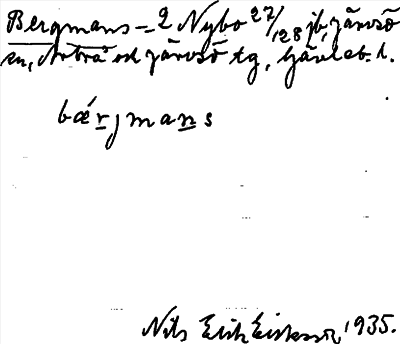 Bergmans = 2 Nybo 27/128 jb, Järvsö
sn, Arbrå od Järvsö tg, Gävleb. l.
bǽrjmans
Nils Erik Eriksson, 1935.